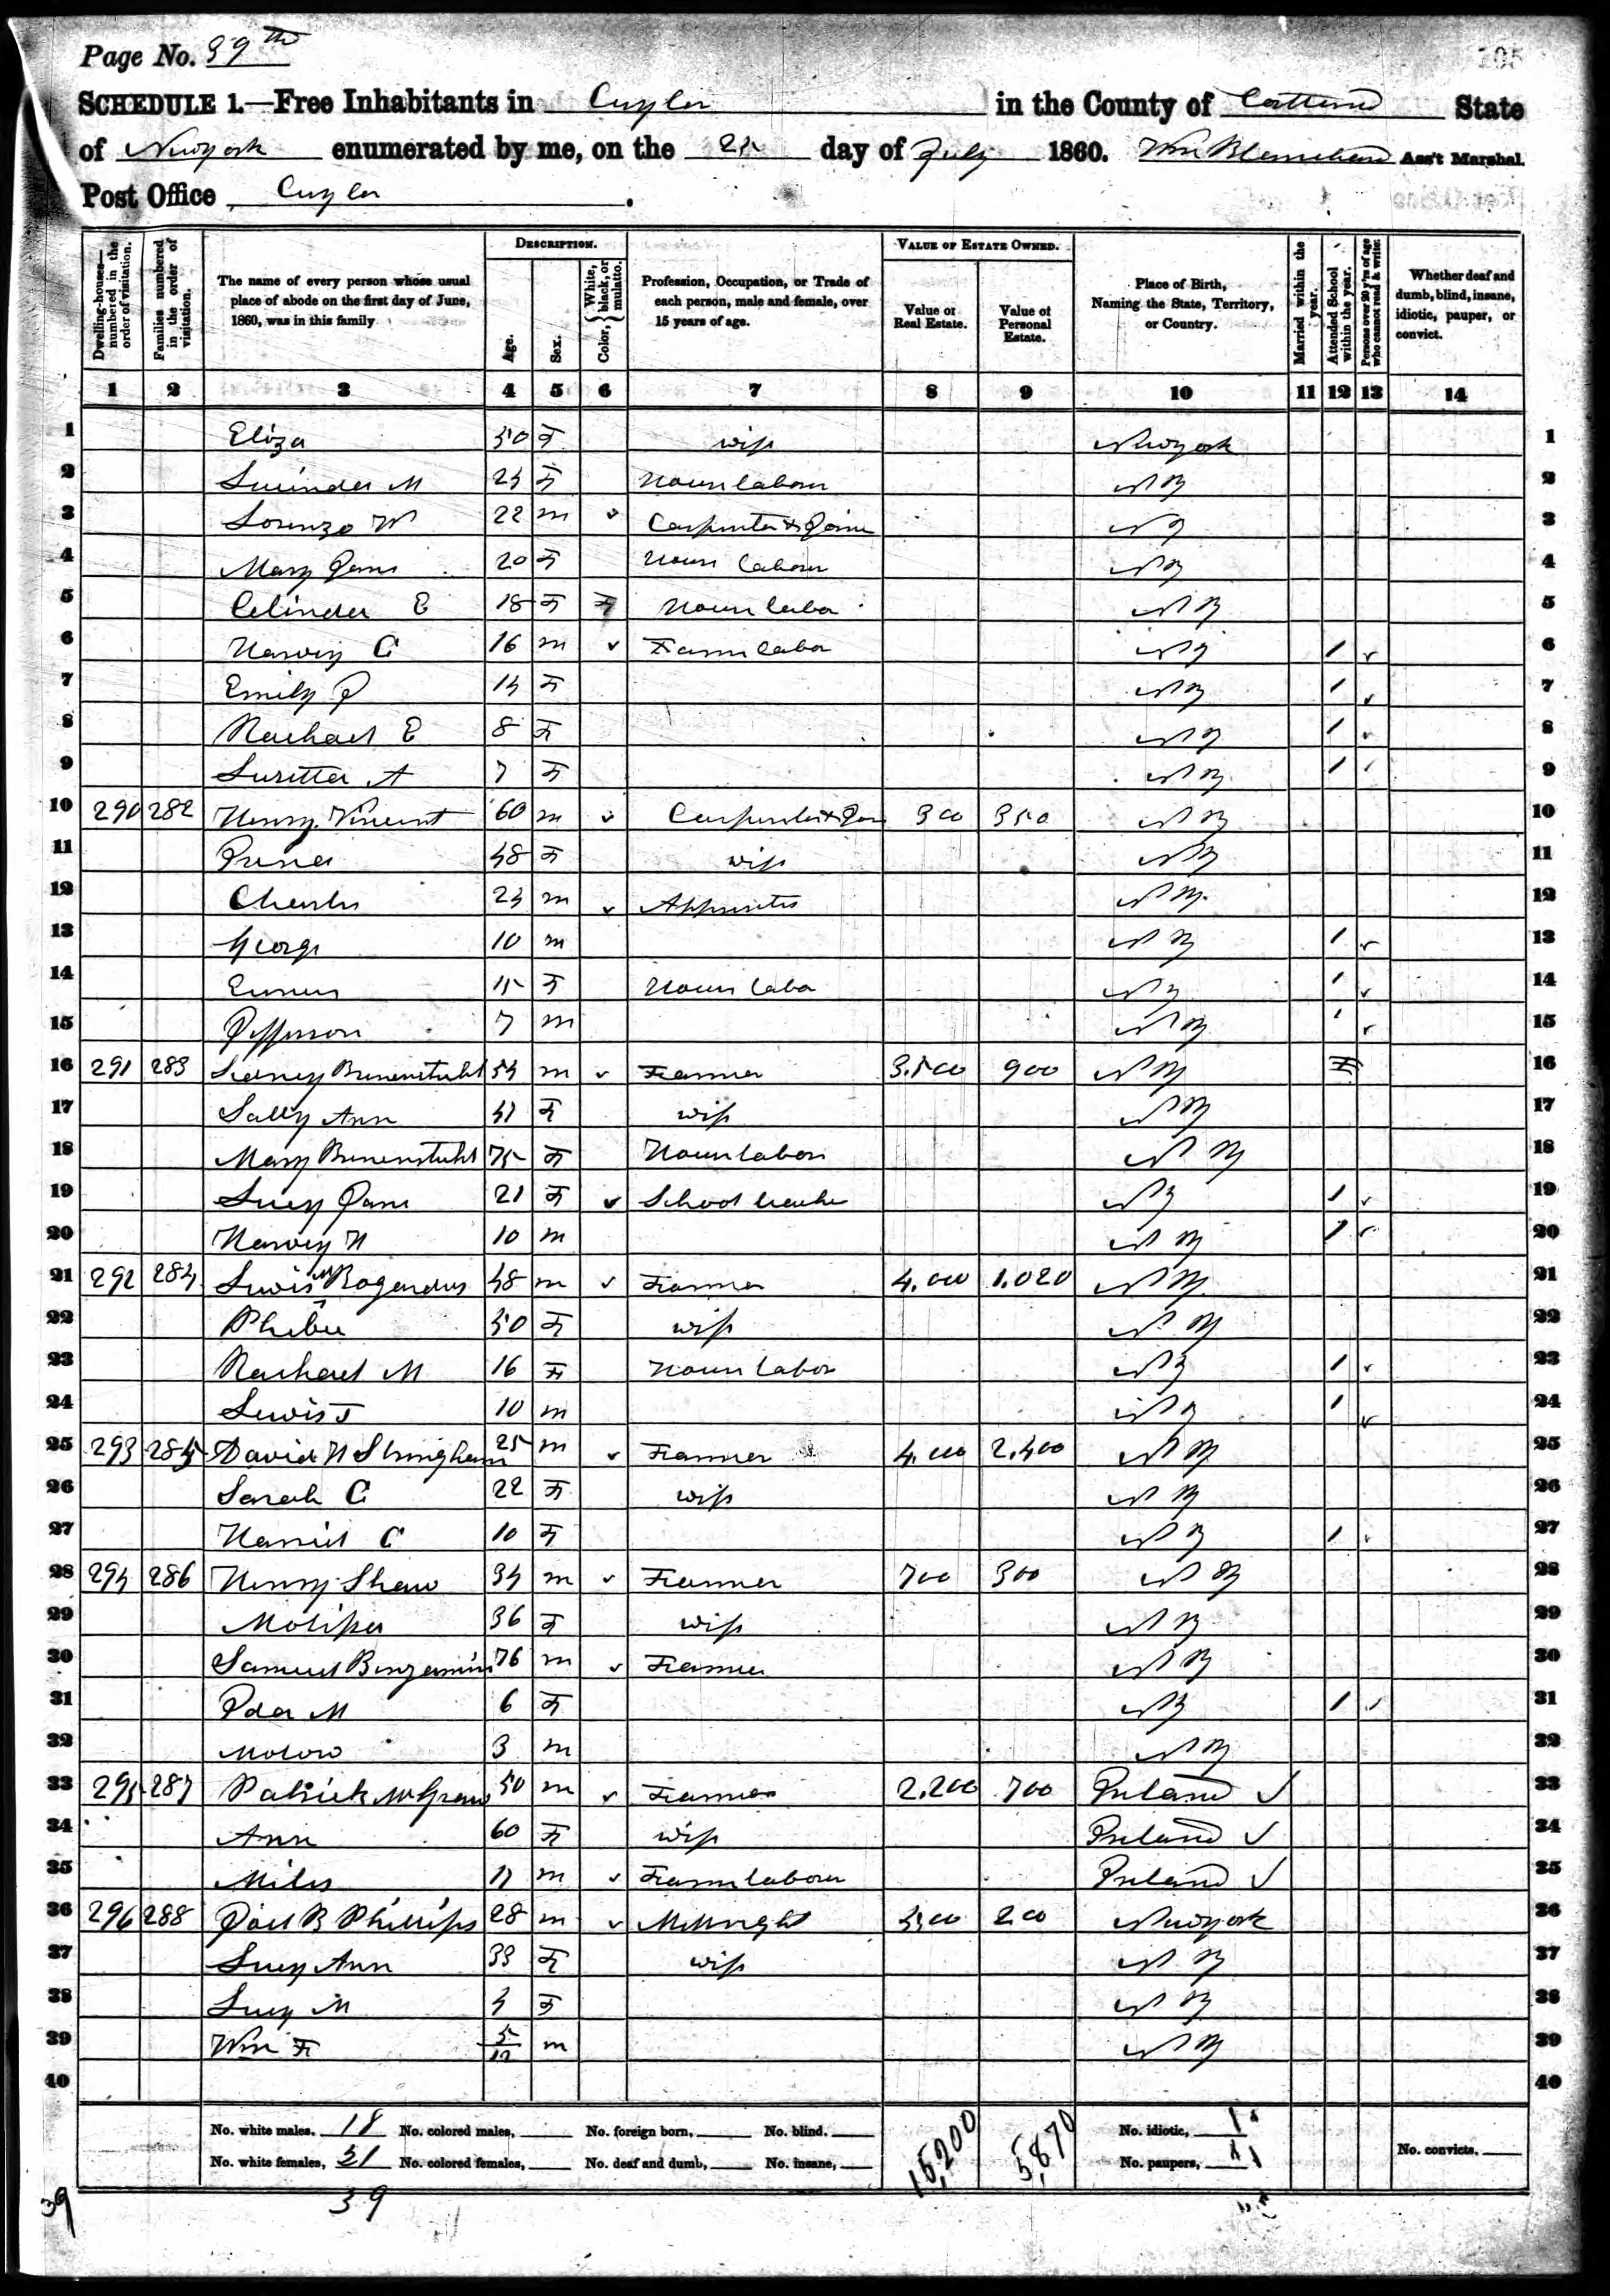 Page No. 39th
105
SCHEDULE 1.—Free Inhabitants in Cuyler in the County of Cortland State
of Newyork enumerated by me, on the day of July 1860. Wm Blanchard Ass't Marshal.
Post Office Cuyler.
Dwelling-houses—numbered in the order of visitation.
Families numbered in the order of visitation.
The name of every person whose usual place of abode on the first day of June, 1860, was in this family
DESCRIPTION.
Age.
Sex.
Color, {White, black, or mulatto.
Profession, Occupation, or Trade of each person, male and female, over 15 years of age.
VALUE OF ESTATE OWNED.
Value of Real Estate.
Value of Personal Estate.
Place of Birth, Naming the State, Territory, or Country.
Married within the year.
Attended School within the year.
Persons over 20 y'rs of age who cannot read & write.
Whether deaf and dumb, blind, insane, idiotic, pauper, or convict.
1 2 3 4 5 6 7 8 9 10 11 12 13 14
1 Eliza 50 F wife Newyork 1
2 M F House labour N Y 2
3 Lorenzo W 22 m Carpenter & Joiner N Y 3
4 Mary Jane 20 F House labour N Y 4
5 Celinda E 18 F F House labor N Y 5
6 Harvey C 16 m Farm labor N Y / 6
7 Emily J 14 F N Y / 7
8 Rachael E 8 F N Y / 8
9 Luretta A 7 F N Y / 9
10 290 282 Henry Vincent 60 m Carpenter & Join 300 350 N Y 10
11 48 F wife N Y 11
12 Charles 24 m Apprentis N Y 12
13 George 10 m N Y / 13
14 15 F House labo N Y / 14
15 Jefferson 7 m N Y / 15
16 291 283 Sidney 54 m Farmer 3.500 900 N Y 16
17 Sally Ann 41 F wife N Y 17
18 Mary 75 F House labor N Y 18
19 Lucy Jane 21 F School teacher N Y / 19
20 Harvey H 10 m N Y / 20
21 292 284 Lewis Bogardus 48 m Farmer 4.000 1.020 N Y 21
22 Phebe 50 F wife N Y 22
23 Rachael M 16 F House labor N Y / 23
24 Lewis J 10 m N Y / 24
25 293 285 David H Stringham 25 m Farmer 4.000 2.400 N Y 25
26 Sarah C 22 F wife N Y 26
27 Harriet C 10 F N Y / 27
28 294 286 Henry Shaw 34 m Farmer 700 300 N Y 28
29 36 F wife N Y 29
30 Samuel Benjamin 76 m Farmer N Y 30
31 Ida M 6 F N Y / 31
32 3 m N Y 32
33 295 287 Patrick McGraw 50 m Farmer 2.200 700 Ireland 33
34 Ann 60 F wife Ireland 34
35 Miles 17 m Farm labour Ireland 35
36 296 288 Joel B Phillips 28 m Millwright 200 Newyork 36
37 Lucy Ann 33 F wife N Y 37
38 Lucy M 4 F N Y 38
39 Wm F 5/12 m N Y 39
40 40
No. white males, 18 No. colored males, No. foreign born, No. blind. 15,200 5,870 No. idiotic,
No. white females, 21 No. colored females, No. deaf and dumb, No. insane, No. paupers, No. convicts,
39 39